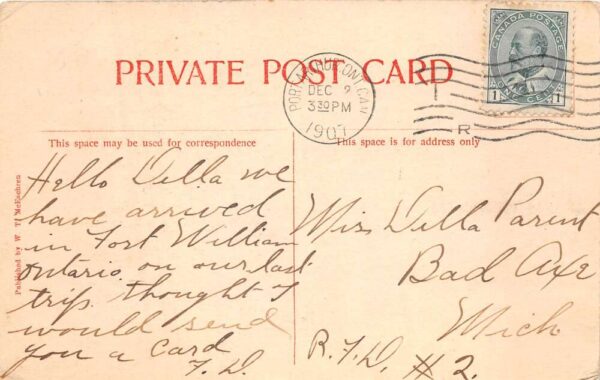 CANADA POSTAGE
ONE CENT
1 1
PRIVATE POST CARD
PORT ARTHUR. ONT. CAN
DEC 9
3 30 PM
1907
R
This space may be used for correspondence
This space is for address only
Published by W. T. McEachren
Hello Della we
have arrived
in Fort William
Ontario on our last
trip. thought I
would send
you a card
F. D.
Miss Della Parent
Bad Axe
Mich
R.F.D. #2.